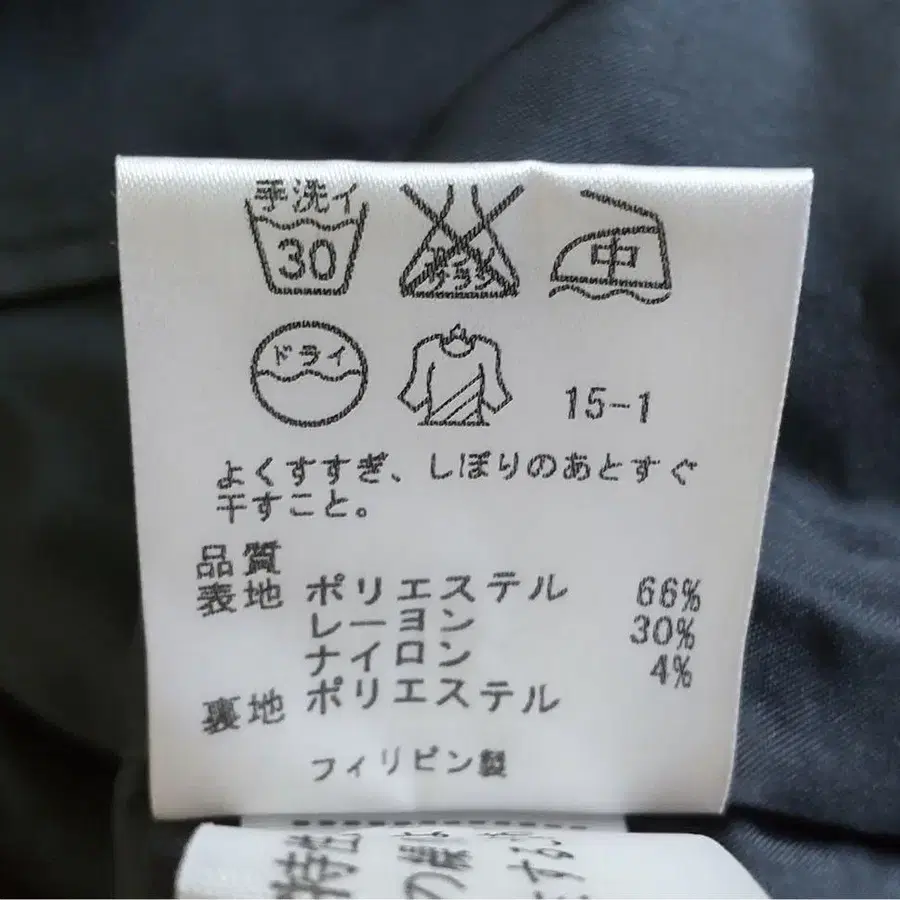 手洗イ
30
中
ドライ
15-1
よくすすぎ、しぼりのあとすぐ
干すこと。
品質
表地 ポリエステル 66%
レーヨン 30%
ナイロン 4%
裏地 ポリエステル
フィリピン製